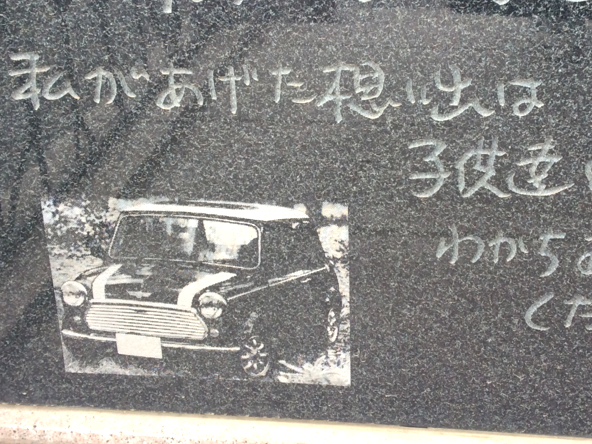 私があげた想い出は
子供達
わかちあ
くだ